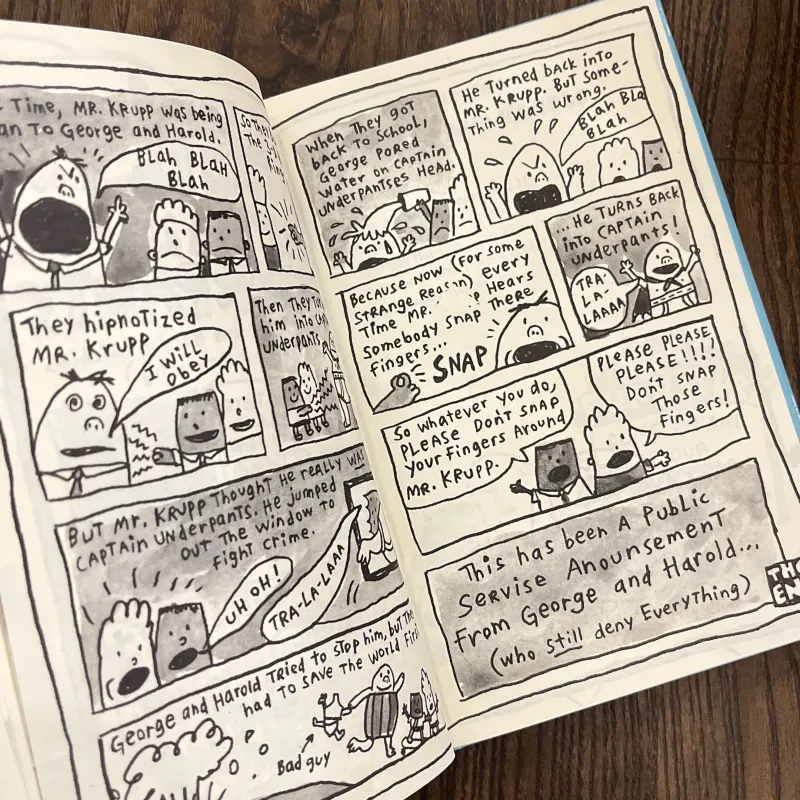 Time, MR. KRUPP was being
an To George and Harold.
BLaH BLAH
BLAH
They hipnotized
MR. KRUPP
I WILL
Obey
Then They
him into
Underpants
BUT MR. KRUPP Thought He really was
CAPTAIN UNDERPANTS. He jumped
out The window to
fight crime.
UH OH!
TRA-LA-LAAA
George and Harold Tried to stop him, but
had To save The world First
Bad guy
When They got
back To school,
George pored
water on Captain
Underpantses Head.
He Turned back into
MR. KRUPP. But Some-
Thing was wrong.
BLaH BLa
BLaH
Because now (for some
strange reason) every
Time MR. Hears
Somebody Snap There
Fingers...
SNAP
...He Turns Back
into CAPTAIN
Underpants!
TRA-
LA-
LAAAA
So whatever you do,
PLEASE DON'T SNAP
your Fingers Around
MR. KRUPP.
PLEASE PLEASE
PLEASE!!!!
Don't SNAP
Those
Fingers!
This has been A Public
Servise Anounsement
From George and Harold...
(who still deny Everything)
THE
END